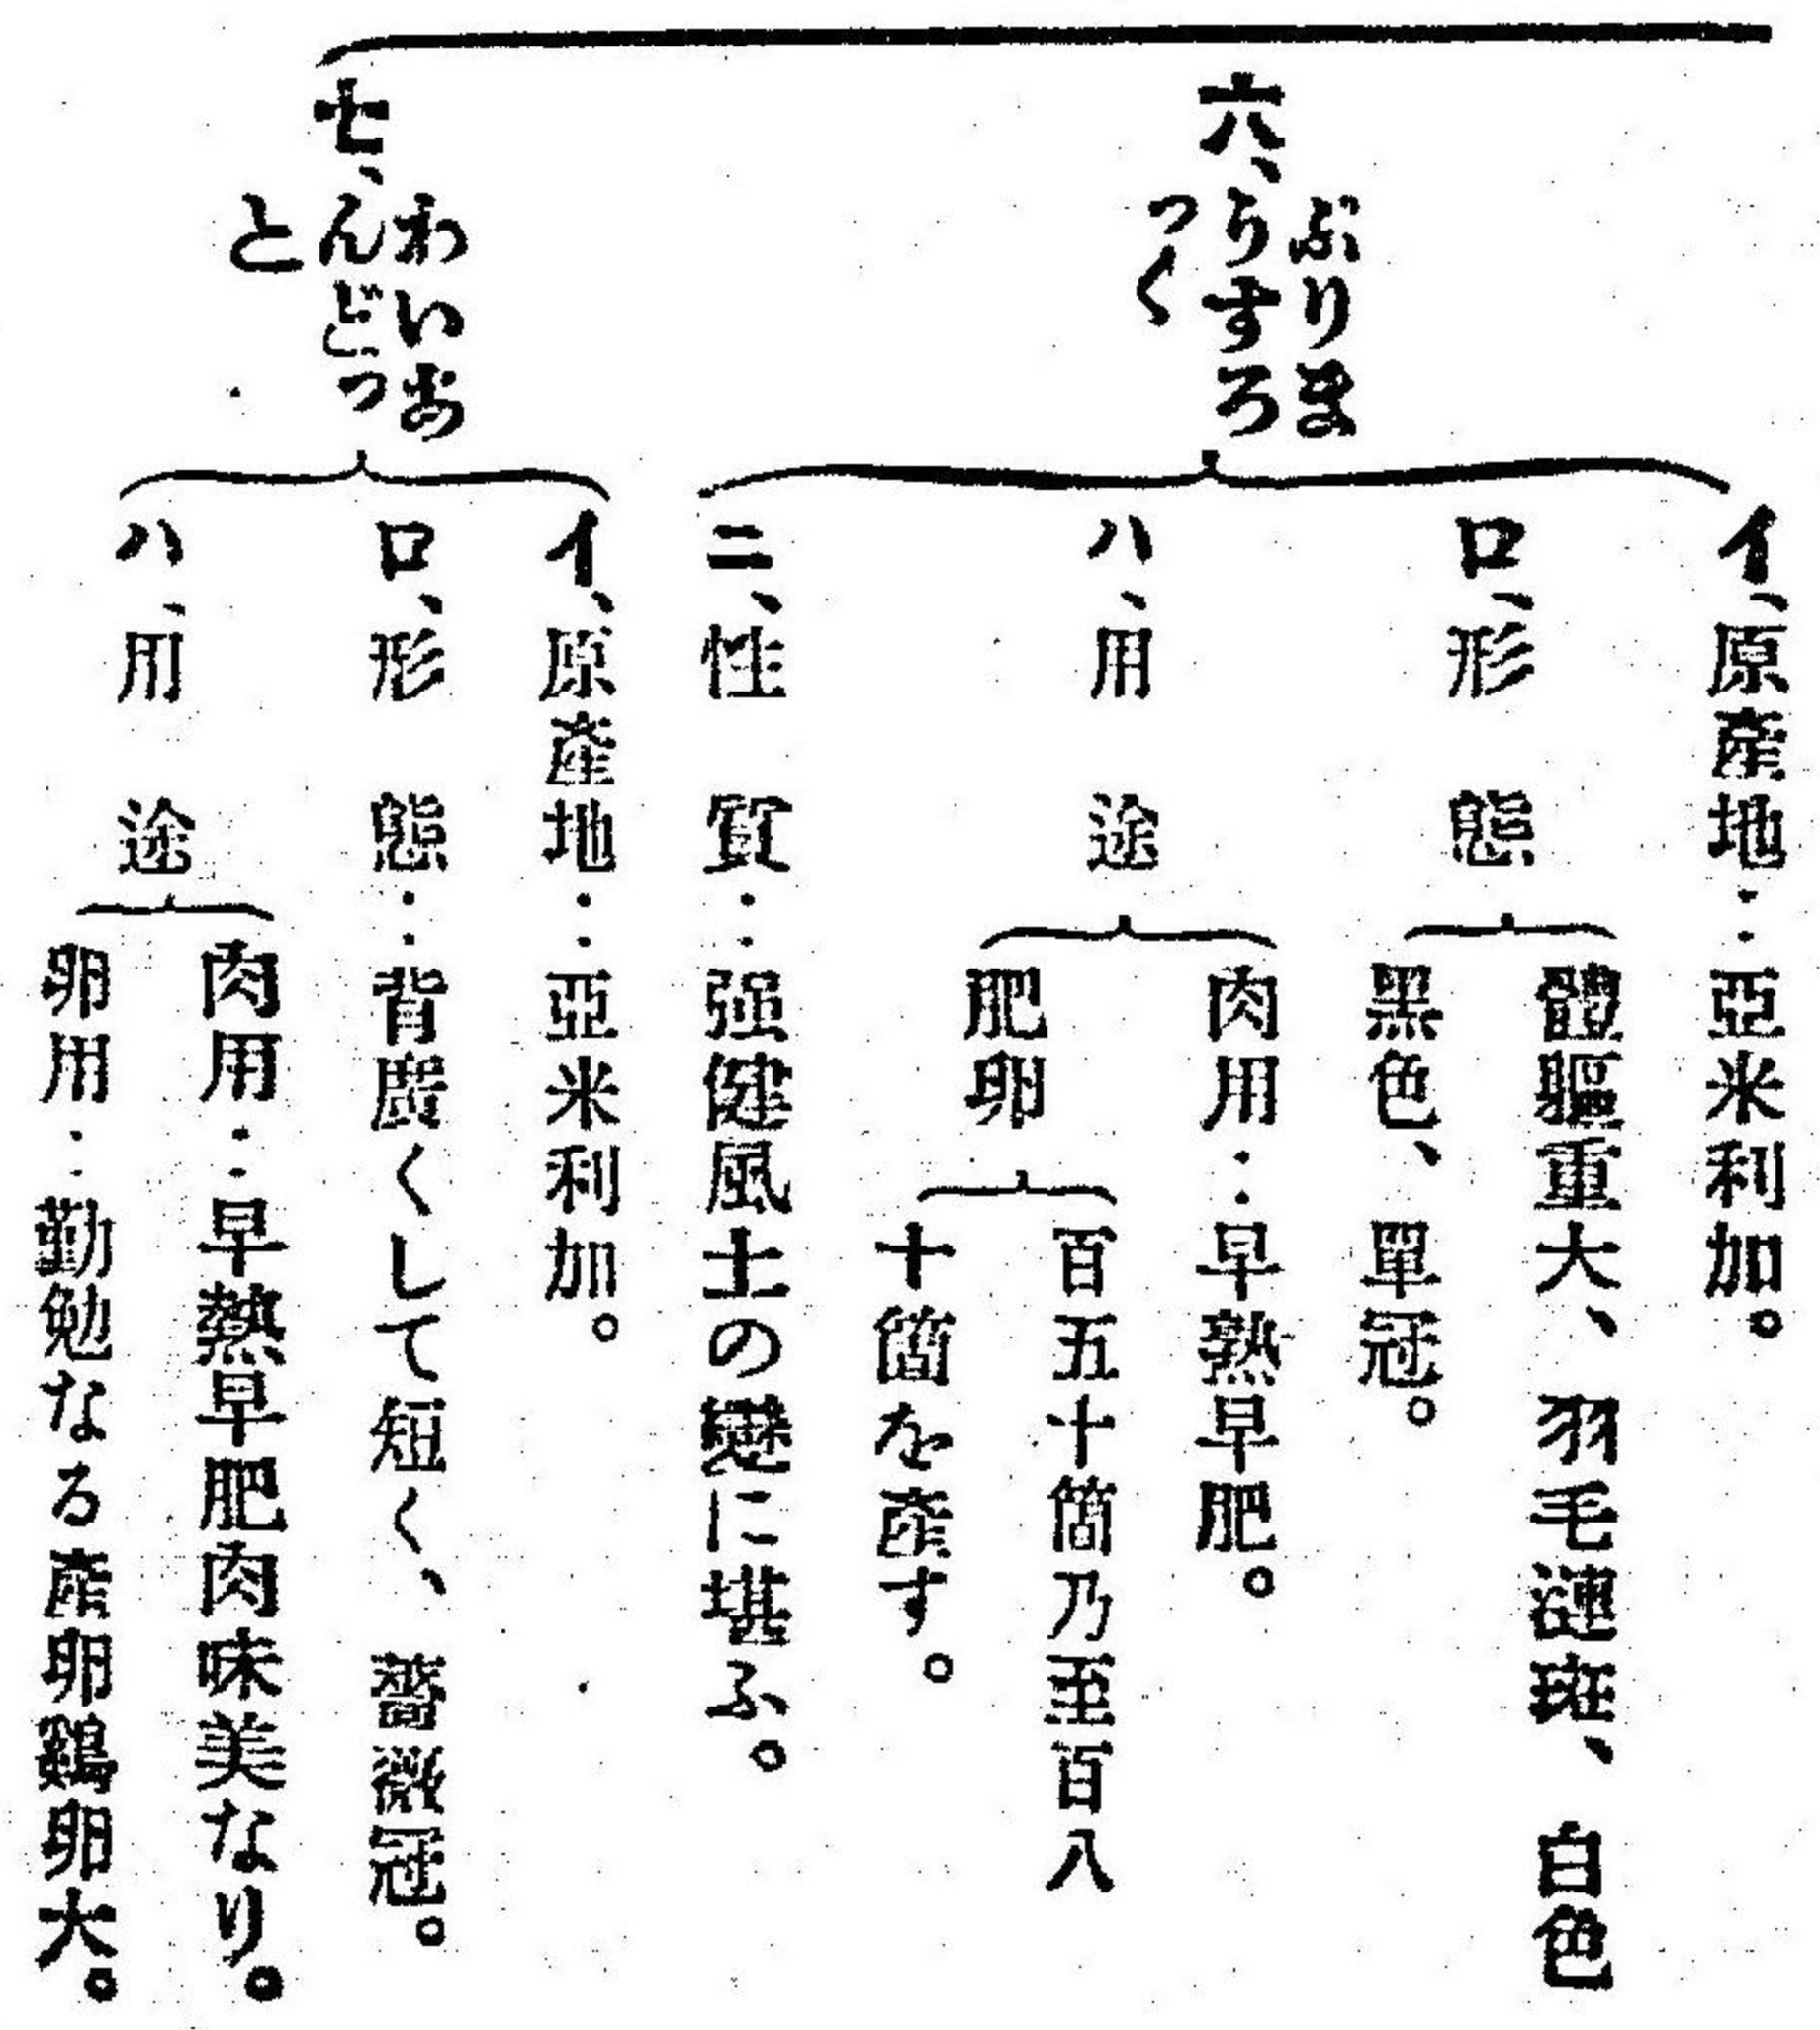 六、ぷりまうすろっく
イ、原產地‥亞米利加。
ロ、形態
體軀重大、羽毛漣斑、白色
黑色、單冠。
ハ、用途
肉用‥早熟早肥。
肥卵
百五十箇乃至百八
十箇を產す。
ニ、性質‥强健風土の變に堪ふ。
七、わいあんどっと
イ、原產地‥亞米利加。
ロ、形態‥背廣くして短く、薔薇冠。
ハ、用途
肉用‥早熱早肥肉味美なり。
卵用‥勤勉なる產卵鷄卵大。